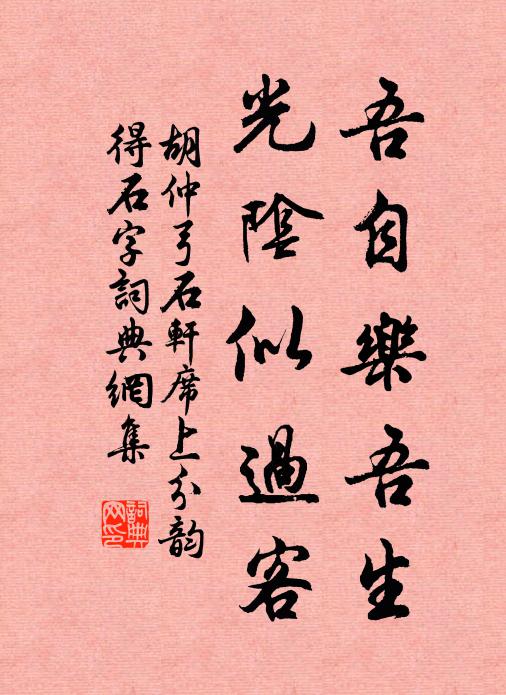 吾自樂吾生
光陰似過客
胡仲弓石軒席上分韵
得石字詞典網集
詞典網印